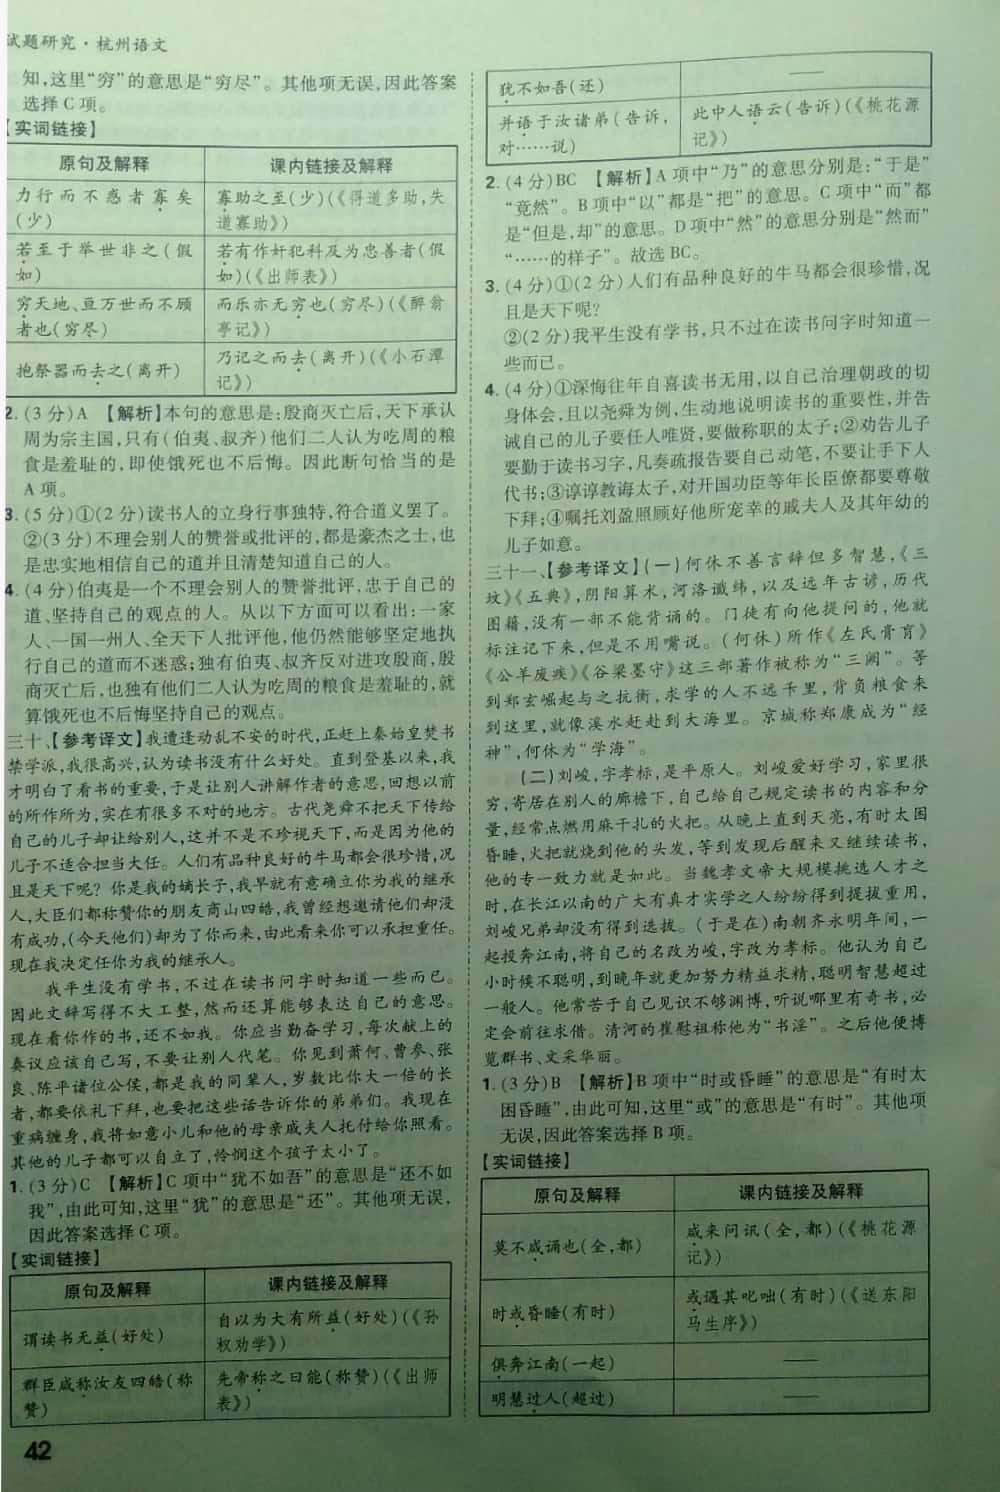 试题研究·杭州语文
知,这里“穷”的意思是“穷尽”。其他项无误,因此答案
选择C项。
【实词链接】
原句及解释 课内链接及解释
力行而不惑者寡矣(少) 寡助之至(少)(《得道多助,失道寡助》)
若至于举世非之(假如) 若有作奸犯科及为忠善者(假如)(《出师表》)
穷天地、亘万世而不顾者也(穷尽) 而乐亦无穷也(穷尽)(《醉翁亭记》)
抱祭器而去之(离开) 乃记之而去(离开)(《小石潭记》)
2.(3分)A 【解析】本句的意思是:殷商灭亡后,天下承认
周为宗主国,只有(伯夷、叔齐)他们二人认为吃周的粮
食是羞耻的,即使饿死也不后悔。因此断句恰当的是
A项。
3.(5分)①(2分)读书人的立身行事独特,符合道义罢了。
②(3分)不理会别人的赞誉或批评的,都是豪杰之士,也
是忠实地相信自己的道并且清楚知道自己的人。
4.(4分)伯夷是一个不理会别人的赞誉批评,忠于自己的
道、坚持自己的观点的人。从以下方面可以看出:一家
人、一国一州人、全天下人批评他,他仍然能够坚定地执
行自己的道而不迷惑;独有伯夷、叔齐反对进攻殷商,殷
商灭亡后,也独有他们二人认为吃周的粮食是羞耻的,就
算饿死也不后悔坚持自己的观点。
三十、【参考译文】我遭逢动乱不安的时代,正赶上秦始皇焚书
禁学派,我很高兴,认为读书没有什么好处。直到登基以来,我
才明白了看书的重要,于是让别人讲解作者的意思,回想以前
的所作所为,实在有很多不对的地方。古代尧舜不把天下传给
自己的儿子却让给别人,这并不是不珍视天下,而是因为他的
儿子不适合担当大任。人们有品种良好的牛马都会很珍惜,况
且是天下呢?你是我的嫡长子,我早就有意确立你为我的继承
人,大臣们都称赞你的朋友商山四皓,我曾经想邀请他们却没
有成功,(今天他们)却为了你而来,由此看来你可以承担重任。
现在我决定任你为我的继承人。
我平生没有学书,不过在读书问字时知道一些而已。
因此文辞写得不大工整,然而还算能够表达自己的意思。
现在看你作的书,还不如我。你应当勤奋学习,每次献上的
奏议应该自己写,不要让别人代笔。你见到萧何、曹参、张
良、陈平诸位公侯,都是我的同辈人,岁数比你大一倍的长
者,都要依礼下拜,也要把这些话告诉你的弟弟们。我现在
重病缠身,我将如意小儿和他的母亲戚夫人托付给你照看。
其他的儿子都可以自立了,怜悯这个孩子太小了。
1.(3分)C 【解析】C项中“犹不如吾”的意思是“还不如
我”,由此可知,这里“犹”的意思是“还”。其他项无误,
因此答案选择C项。
【实词链接】
原句及解释 课内链接及解释
谓读书无益(好处) 自以为大有所益(好处)(《孙权劝学》)
群臣咸称汝友四皓(称赞) 先帝称之曰能(称赞)(《出师表》)
42
犹不如吾(还) ——
并语于汝诸弟(告诉,对……说) 此中人语云(告诉)(《桃花源记》)
2.(4分)BC 【解析】A项中“乃”的意思分别是:“于是”
“竟然”。B项中“以”都是“把”的意思。C项中“而”都
是“但是,却”的意思。D项中“然”的意思分别是“然而”
“……的样子”。故选BC。
3.(4分)①(2分)人们有品种良好的牛马都会很珍惜,况
且是天下呢?
②(2分)我平生没有学书,只不过在读书问字时知道一
些而已。
4.(4分)①深悔往年自喜读书无用,以自己治理朝政的切
身体会,且以尧舜为例,生动地说明读书的重要性,并告
诫自己的儿子要任人唯贤,要做称职的太子;②劝告儿子
要勤于读书习字,凡奏疏报告要自己动笔,不要让手下人
代书;③谆谆教诲太子,对开国功臣等年长臣僚都要尊敬
下拜;④嘱托刘盈照顾好他所宠幸的戚夫人及其年幼的
儿子如意。
三十一、【参考译文】(一)何休不善言辞但多智慧,《三
坟》《五典》,阴阳算术,河洛谶纬,以及远年古谚,历代
图籍,没有一部不能背诵的。门徒有向他提问的,他就
标注记下来,但是不用嘴说。(何休)所作《左氏膏肓》
《公羊废疾》《谷梁墨守》这三部著作被称为“三阙”。等
到郑玄崛起与之抗衡,求学的人不远千里,背负粮食来
到这里,就像溪水赶赴到大海里。京城称郑康成为“经
神”,何休为“学海”。
(二)刘峻,字孝标,是平原人。刘峻爱好学习,家里很
穷,寄居在别人的廊檐下,自己给自己规定读书的内容和分
量,经常点燃用麻干扎的火把。从晚上直到天亮,有时太困
昏睡,火把就烧到他的头发,等到发现后醒来又继续读书,
他的专一致力就是如此。当魏孝文帝大规模挑选人才之
时,在长江以南的广大有真才实学之人纷纷得到提拔重用,
刘峻兄弟却没有得到选拔。(于是在)南朝齐永明年间,一
起投奔江南,将自己的名改为峻,字改为孝标。他认为自己
小时候不聪明,到晚年就更加努力精益求精,聪明智慧超过
一般人。他常苦于自己见识不够渊博,听说哪里有奇书,必
定会前往求借。清河的崔慰祖称他为“书淫”。之后他便博
览群书、文采华丽。
1.(3分)B 【解析】B项中“时或昏睡”的意思是“有时太
困昏睡”,由此可知,这里“或”的意思是“有时”。其他项
无误,因此答案选择B项。
【实词链接】
原句及解释 课内链接及解释
莫不咸诵也(全,都) 咸来问讯(全,都)(《桃花源记》)
时或昏睡(有时) 或遇其叱咄(有时)(《送东阳马生序》)
俱奔江南(一起) ——
明慧过人(超过) ——